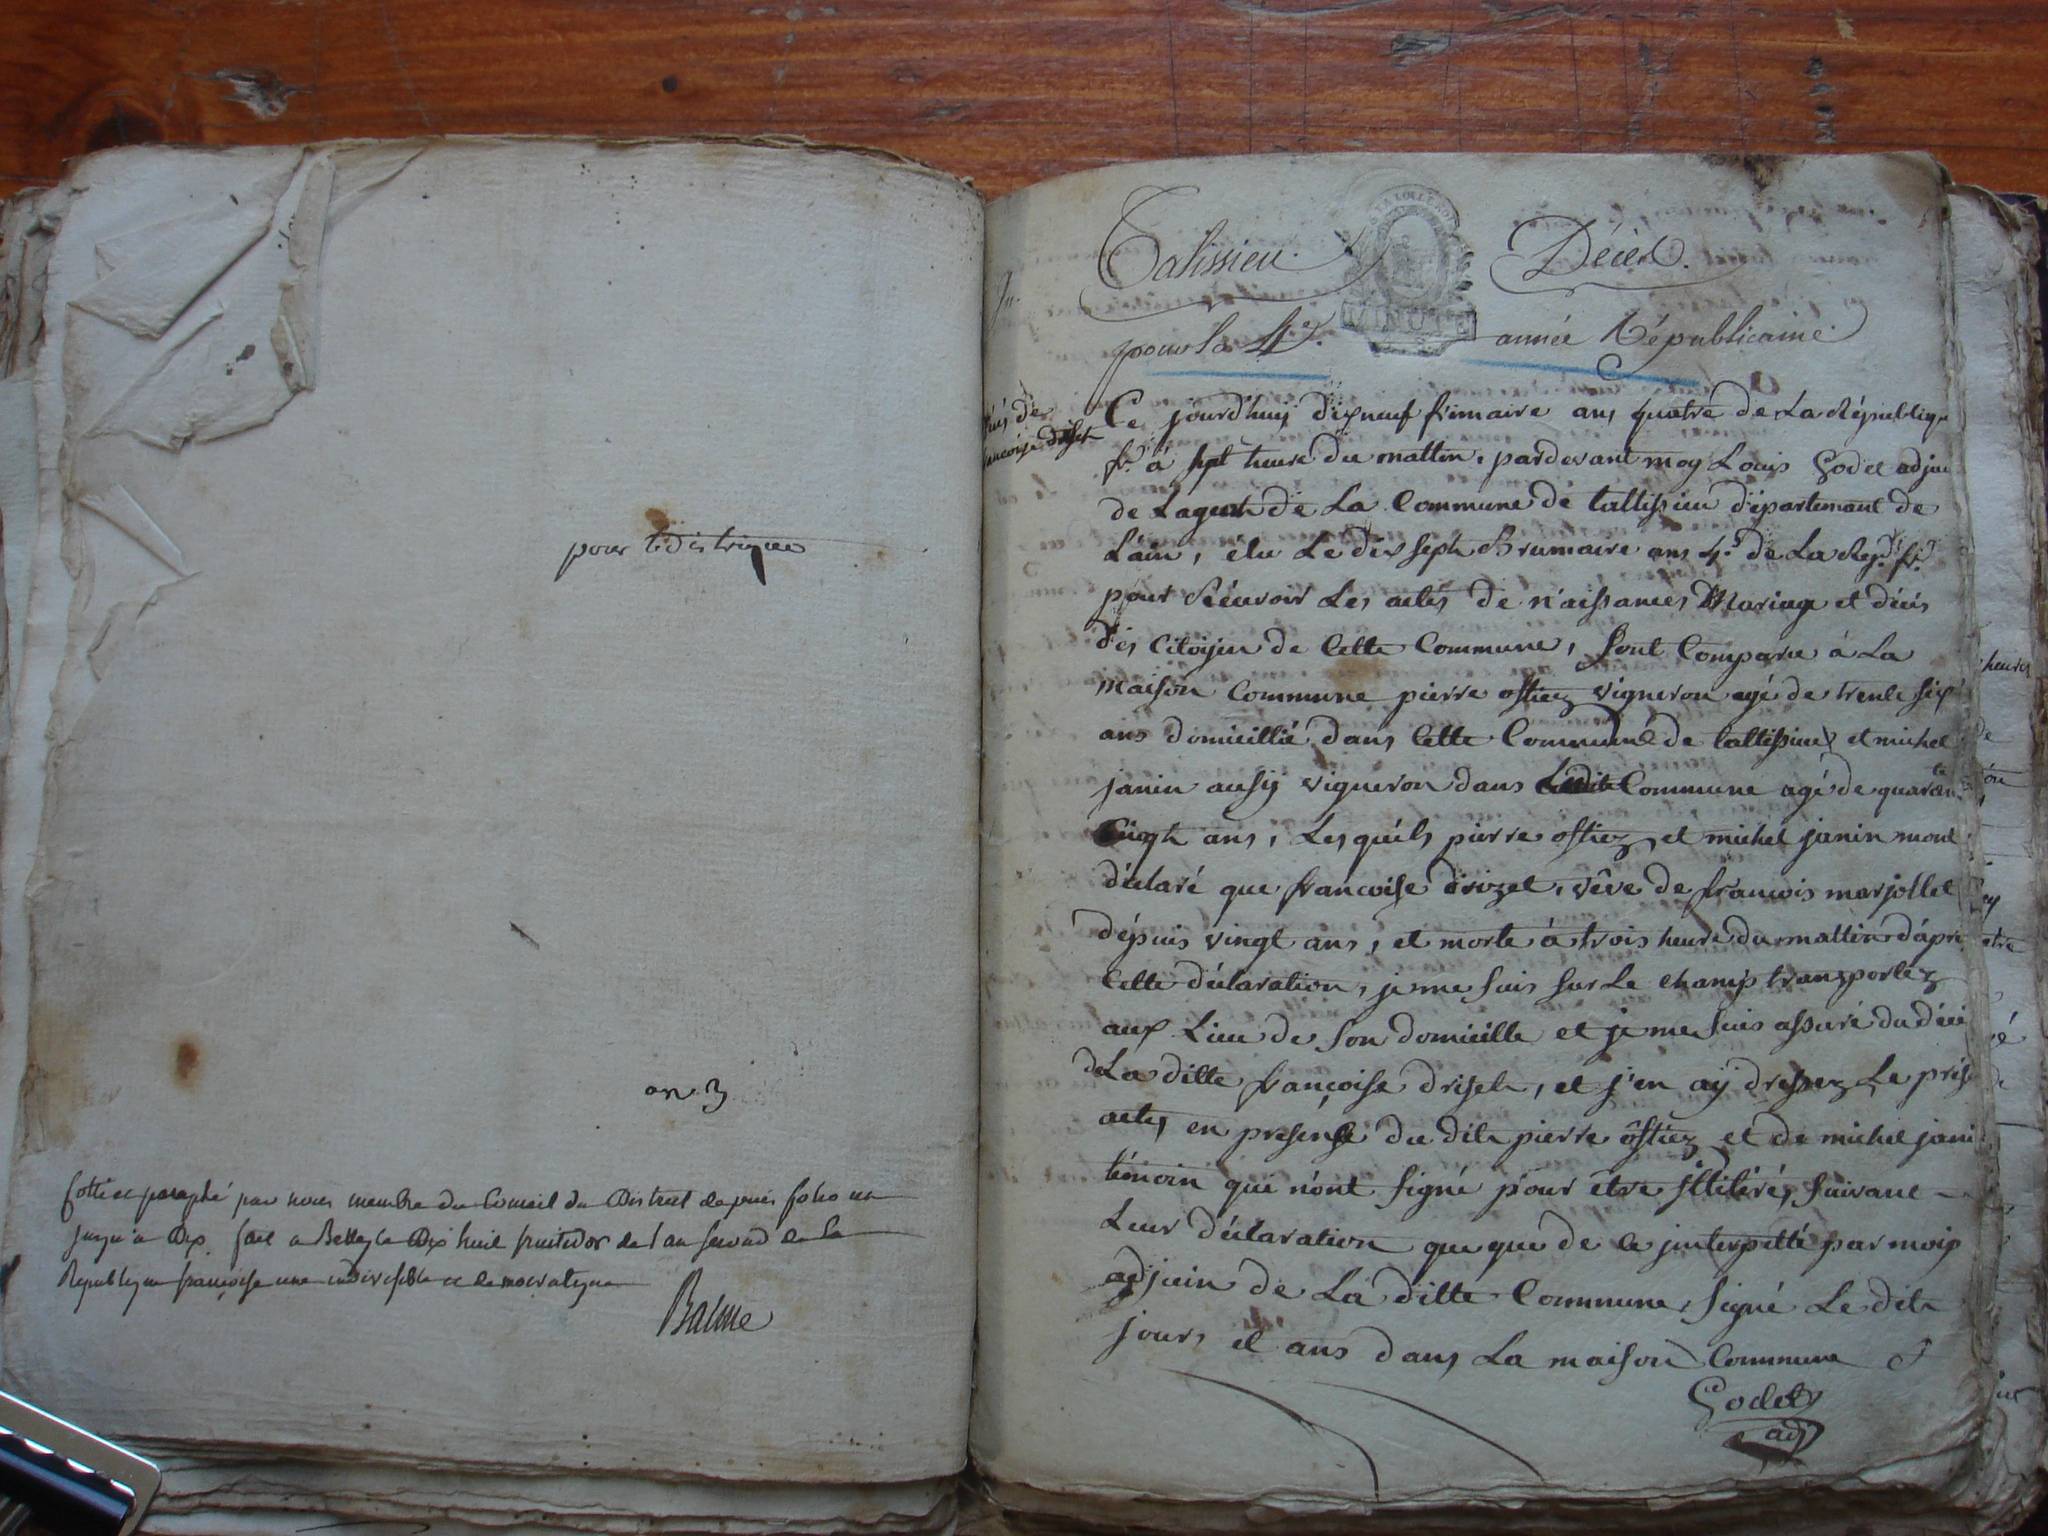 pour le district
an 3
Cotté et paraphé par nous membre du Conseil du District depuis folio un
jusqu'a Dix. fait a Belley le Dix huit fructidor de l'an second de la
Republique françoise une indivisible et democratique
Balme
Talissieu. Décès.
MINUTE
pour la 4e. année Républicaine.
décès de
françoise driset
Ce jourd'huij dixneuf frimaire ans quatre de La Républiqu
fr. à sept heure du mattin, pardevant moy Louis Godet adjoi
de Lagent de La Commune de tallissieu départemant de
Lain, élu Le dix sept Brumaire ans 4e de La Rep. fr.
pour Récevoir Les actes de Naissances Mariage et décès
des Citoijen de Cette Commune, sont Comparu à La
maison Commune pierre ostiez vigneron agé de trente six
ans domicillié dans Cette Commune de tallissieu et michel
janin ausij vigneron dans Commune agé de quarante
Cinqt ans, Lesquéls pierre ostiez et michel janin mont
déclaré que francoise drizet, vêve de francois marjollet
dépuis vingt ans, et morte à trois heure du mattin d'apre
Cette déclaration, je me suis sur Le champ transportéz
aux Lieu de son domicille et je me suis assuré du décè
de La ditte françoise driset, et j'en aij dressez Le prése
acte, en presense du dit pierre ôstiez et de michel jani
témoin qui n'ont signé pour être illitéré, suivant
Leur déclaration que que de ce jinterpellé par moij
adjoin de La ditte Commune, signé Le dit
jours et ans dans La maison Commune
Godet
adj
heures